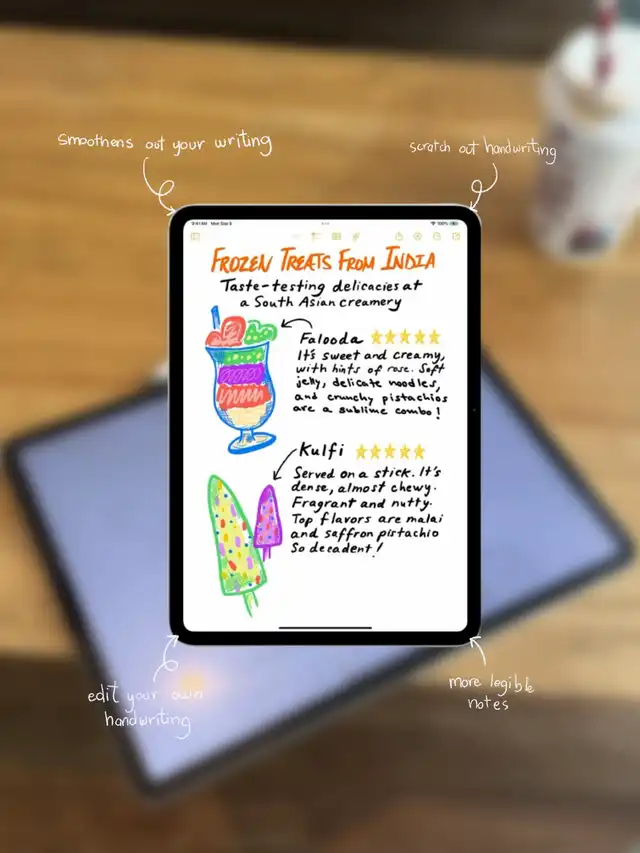 smoothens out your writing
scratch out handwriting
9:41 AM Mon Sep 9
100%
FROZEN TREATS FROM INDIA
Taste-testing delicacies at
a South Asian creamery
Falooda
It's sweet and creamy,
with hints of rose. Soft
jelly, delicate noodles,
and crunchy pistachios
are a sublime combo!
Kulfi
Served on a stick. It's
dense, almost chewy.
Fragrant and nutty.
Top flavors are malai
and saffron pistachio
So decadent!
edit your own
handwriting
more legible
notes